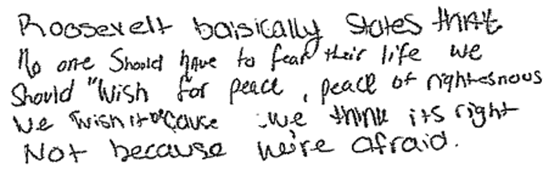 Roosevelt baisically states that
No one should have to fear their life we
should "wish for peace, peace of rightesnous
we wish it cause we think its right
Not because we're afraid.